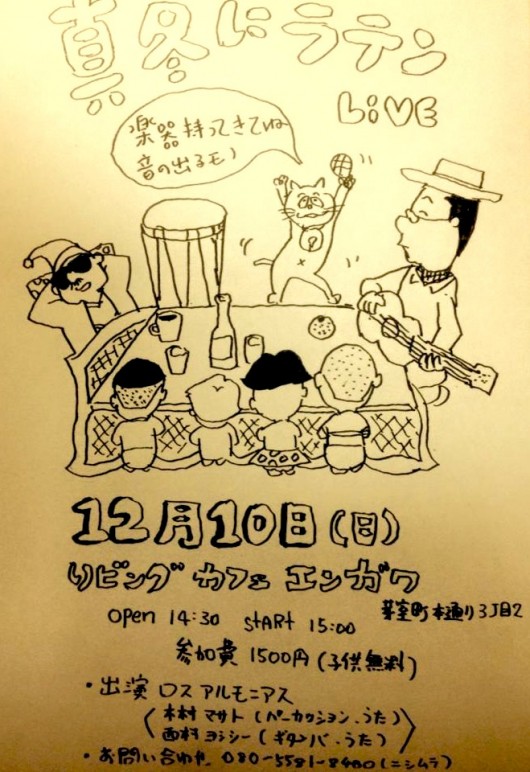 真冬にラテン
LiVE
楽器持ってきてね
音の出るモノ
12月10日(日)
リビングカフェ エンガワ
芽室町本通り3丁目2
open 14:30 start 15:00
参加費 1500円(子供無料)
・出演 ロス アルモニアス
木村マサト(パーカッション.うた)
西村ヨシシー(ギタンバ.うた)
・お問い合わせ. 080-5581-8480(ニシムラ)